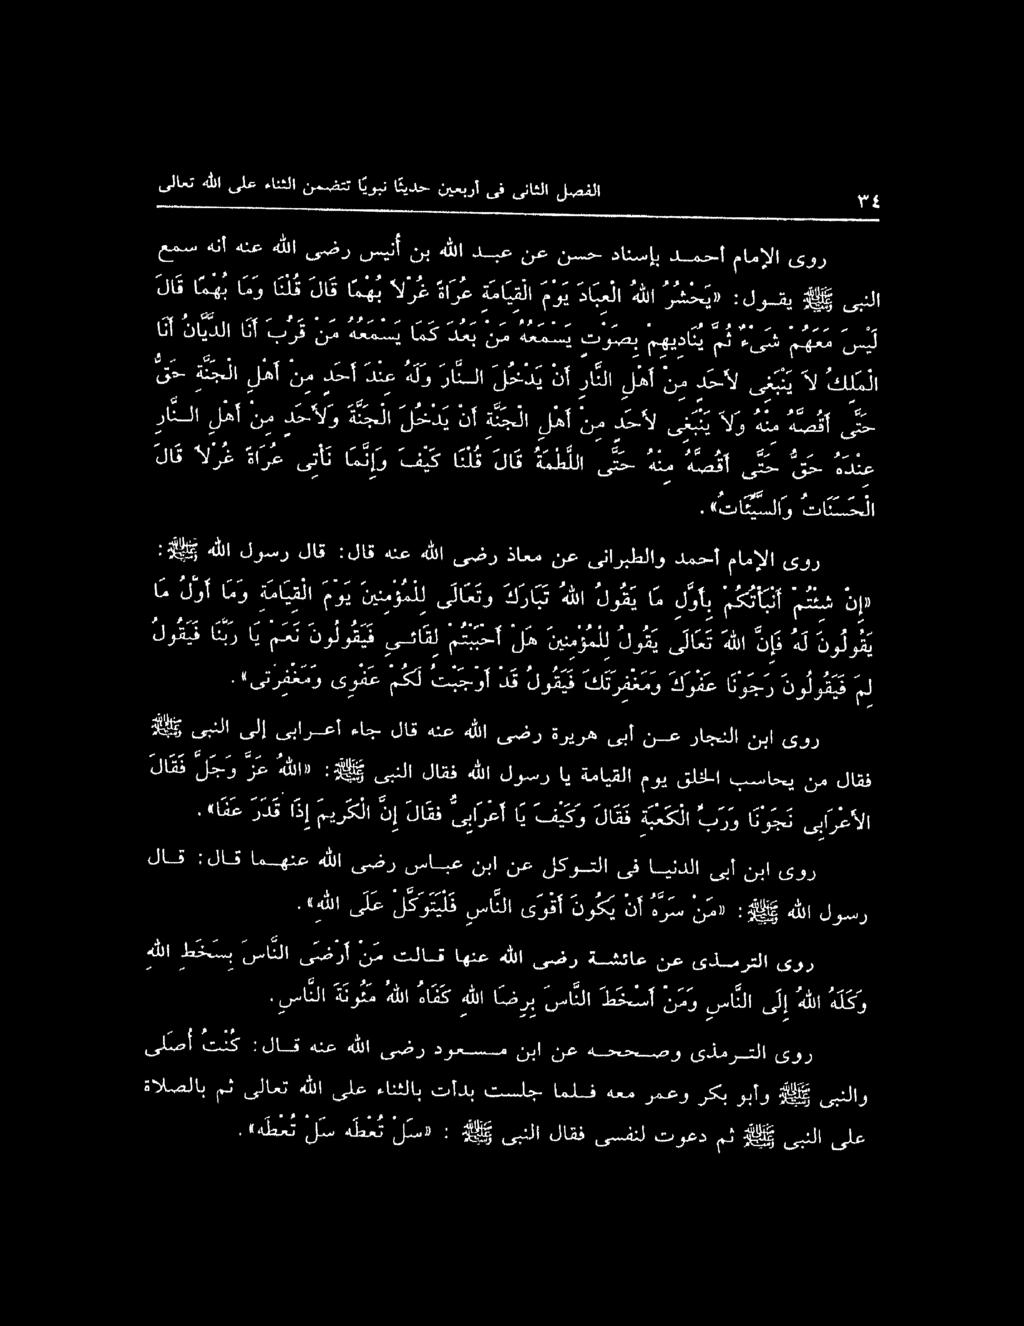 ٣٤
الفصل الثانى فى أربعين حديثًا نبويًا تتضمن الثناء على الله تعالى
روى الإمام أحمد بإسناد حسن عن عبد الله بن أُنيس رضى الله عنه أنه سمع
النبى ﷺ يقول: «يَحْشُرُ اللهُ الْعِبَادَ يَوْمَ الْقِيَامَةِ عُرَاةً غُرْلاً بُهْمًا قَالَ قُلْنَا وَمَا بُهْمًا قَالَ
لَيْسَ مَعَهُمْ شَىْءٌ ثُمَّ يُنَادِيهِمْ بِصَوْتٍ يَسْمَعُهُ مَنْ بَعُدَ كَمَا يَسْمَعُهُ مَنْ قَرُبَ أَنَا الدَّيَّانُ أَنَا
الْمَلِكُ لاَ يَنْبَغِى لأَحَدٍ مِنْ أَهْلِ النَّارِ أَنْ يَدْخُلَ النَّارَ وَلَهُ عِنْدَ أَحَدٍ مِنْ أَهْلِ الْجَنَّةِ حَقٌّ
حَتَّى أَقُصَّهُ مِنْهُ وَلاَ يَنْبَغِى لأَحَدٍ مِنْ أَهْلِ الْجَنَّةِ أَنْ يَدْخُلَ الْجَنَّةَ وَلأَحَدٍ مِنْ أَهْلِ النَّارِ
عِنْدَهُ حَقٌّ حَتَّى أَقُصَّهُ مِنْهُ حَتَّى اللَّطْمَةُ قَالَ قُلْنَا كَيْفَ وَإِنَّمَا نَأْتِى عُرَاةً غُرْلاً قَالَ
الْحَسَنَاتُ وَالسَّيِّئَاتُ».
روى الإمام أحمد والطبرانى عن معاذ رضى الله عنه قال: قال رسول الله ﷺ:
«إِنْ شِئْتُمْ أَنْبَأْتُكُمْ بِأَوَّلِ مَا يَقُولُ اللهُ تَبَارَكَ وَتَعَالَى لِلْمُؤْمِنِينَ يَوْمَ الْقِيَامَةِ وَمَا أَوَّلُ مَا
يَقُولُونَ لَهُ فَإِنَّ اللهَ تَعَالَى يَقُولُ لِلْمُؤْمِنِينَ هَلْ أَحْبَبْتُمْ لِقَائِى فَيَقُولُونَ نَعَمْ يَا رَبَّنَا فَيَقُولُ
لِمَ فَيَقُولُونَ رَجَوْنَا عَفْوَكَ وَمَغْفِرَتَكَ فَيَقُولُ قَدْ أَوْجَبْتُ لَكُمْ عَفْوِى وَمَغْفِرَتِى».
روى ابن النجار عن أبى هريرة رضى الله عنه قال جاء أعرابى إلى النبى ﷺ
فقال من يحاسب الخلق يوم القيامة يا رسول الله فقال النبى ﷺ: «اللهُ عَزَّ وَجَلَّ فَقَالَ
الأَعْرَابِى نَجَوْنَا وَرَبِّ الْكَعْبَةِ فَقَالَ وَكَيْفَ يَا أَعْرَابِىُّ فقَالَ إِنَّ الْكَرِيمَ إِذَا قَدَرَ عَفَا».
روى ابن أبى الدنيا فى التوكل عن ابن عباس رضى الله عنهما قال: قال
رسول الله ﷺ: «مَنْ سَرَّهُ أَنْ يَكُونَ أَقْوَى النَّاسِ فَلْيَتَوَكَّلْ عَلَى اللهِ».
روى الترمذى عن عائشة رضى الله عنها قالت مَنْ أَرْضَى النَّاسَ بِسَخَطِ اللهِ
وَكَلَهُ اللهُ إِلَى النَّاسِ وَمَنْ أَسْخَطَ النَّاسَ بِرِضَا اللهِ كَفَاهُ اللهُ مَئُونَةَ النَّاسِ.
روى الترمذى وصححه عن ابن مسعود رضى الله عنه قال: كُنْتُ أُصَلِّى
والنبى ﷺ وأبو بكر وعمر معه فلما جلست بدأت بالثناء على الله تعالى ثم بالصلاة
على النبى ﷺ ثم دعوت لنفسى فقال النبى ﷺ : «سَلْ تُعْطَه سَلْ تُعْطَه».